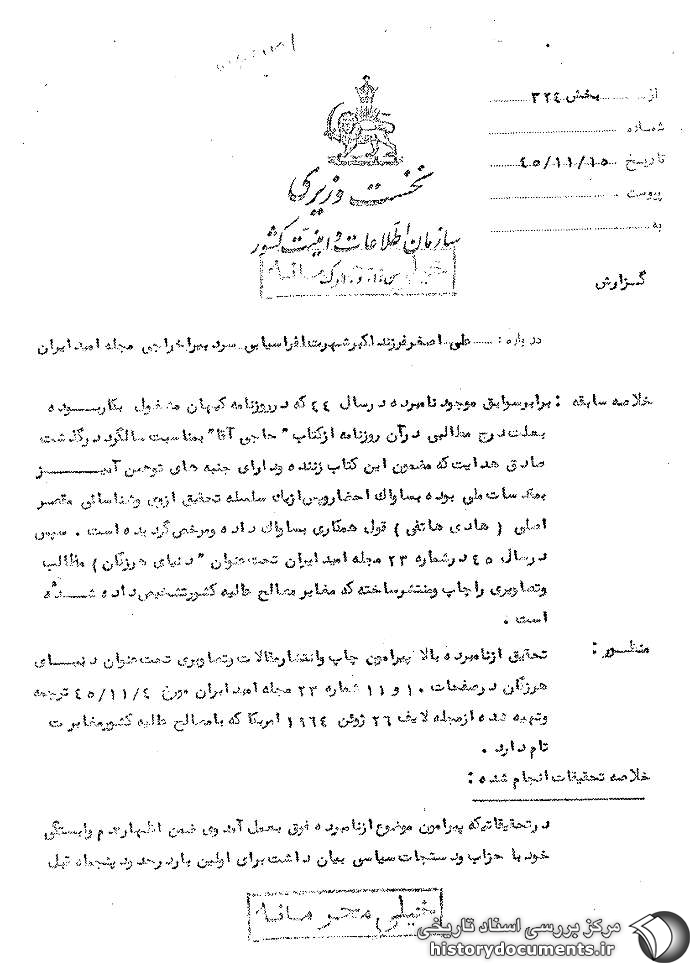 از بخش ۳۲٤
شماره
تاریخ ٤۵/۱۱/۱۵
پیوست
به
نخست وزیری
سازمان اطلاعات و امنیت کشور
خیلی محرمانه
گزارش
درباره : علی اصغر فرزند اکبر شهرت افراسیابی سردبیر اخراجی مجله امید ایران
خلاصه سابقه : برابر سوابق موجود نامبرده در سال ٤٤ که در روزنامه کیهان مشغول بکار بوده
بعلت درج مطالبی در آن روزنامه از کتاب " حاجی آقا" بمناسبت سالگرد درگذشت
صادق هدایت که مضمون این کتاب زننده و دارای جنبه های توهین آمیز
بمقدسات ملی بوده بساواك احضار و پس از یك سلسله تحقیق از وی و شناسائی مقصر
اصلی ( هادی هاتفی ) قول همکاری بساواك داده و مرخص گردیده است . سپس
در سال ٤۵ در شماره ۲۳ مجله امید ایران تحت عنوان " دنیای هرزگان ) مطالب
و تصاویری را چاپ و منتشر ساخته که مغایر مصالح عالیه کشور تشخیص داده شده
است .
منظور : تحقیق از نامبرده بالا پیرامون چاپ و انتشار مقالات و تصاویری تحت عنوان دنیای
هرزگان در صفحات ۱۰ و ۱۱ شماره ۲۳ مجله امید ایران مورخ ٤۵/۱۱/٤ ترجمه
و تهیه شده از مجله لایف ۲٦ ژوئن ۱۹٦٤ امریکا که با مصالح عالیه کشور مغایرت
تام دارد .
خلاصه تحقیقات انجام شده :
در تحقیقاتیکه پیرامون موضوع از نامبرده فوق بعمل آمد وی ضمن اظهار عدم وابستگی
خود با حزاب و دستجات سیاسی بیان داشت برای اولین بار در حدود پنجماه قبل
خیلی محرمانه
مرکز بررسی اسناد تاریخی
historydocuments.ir